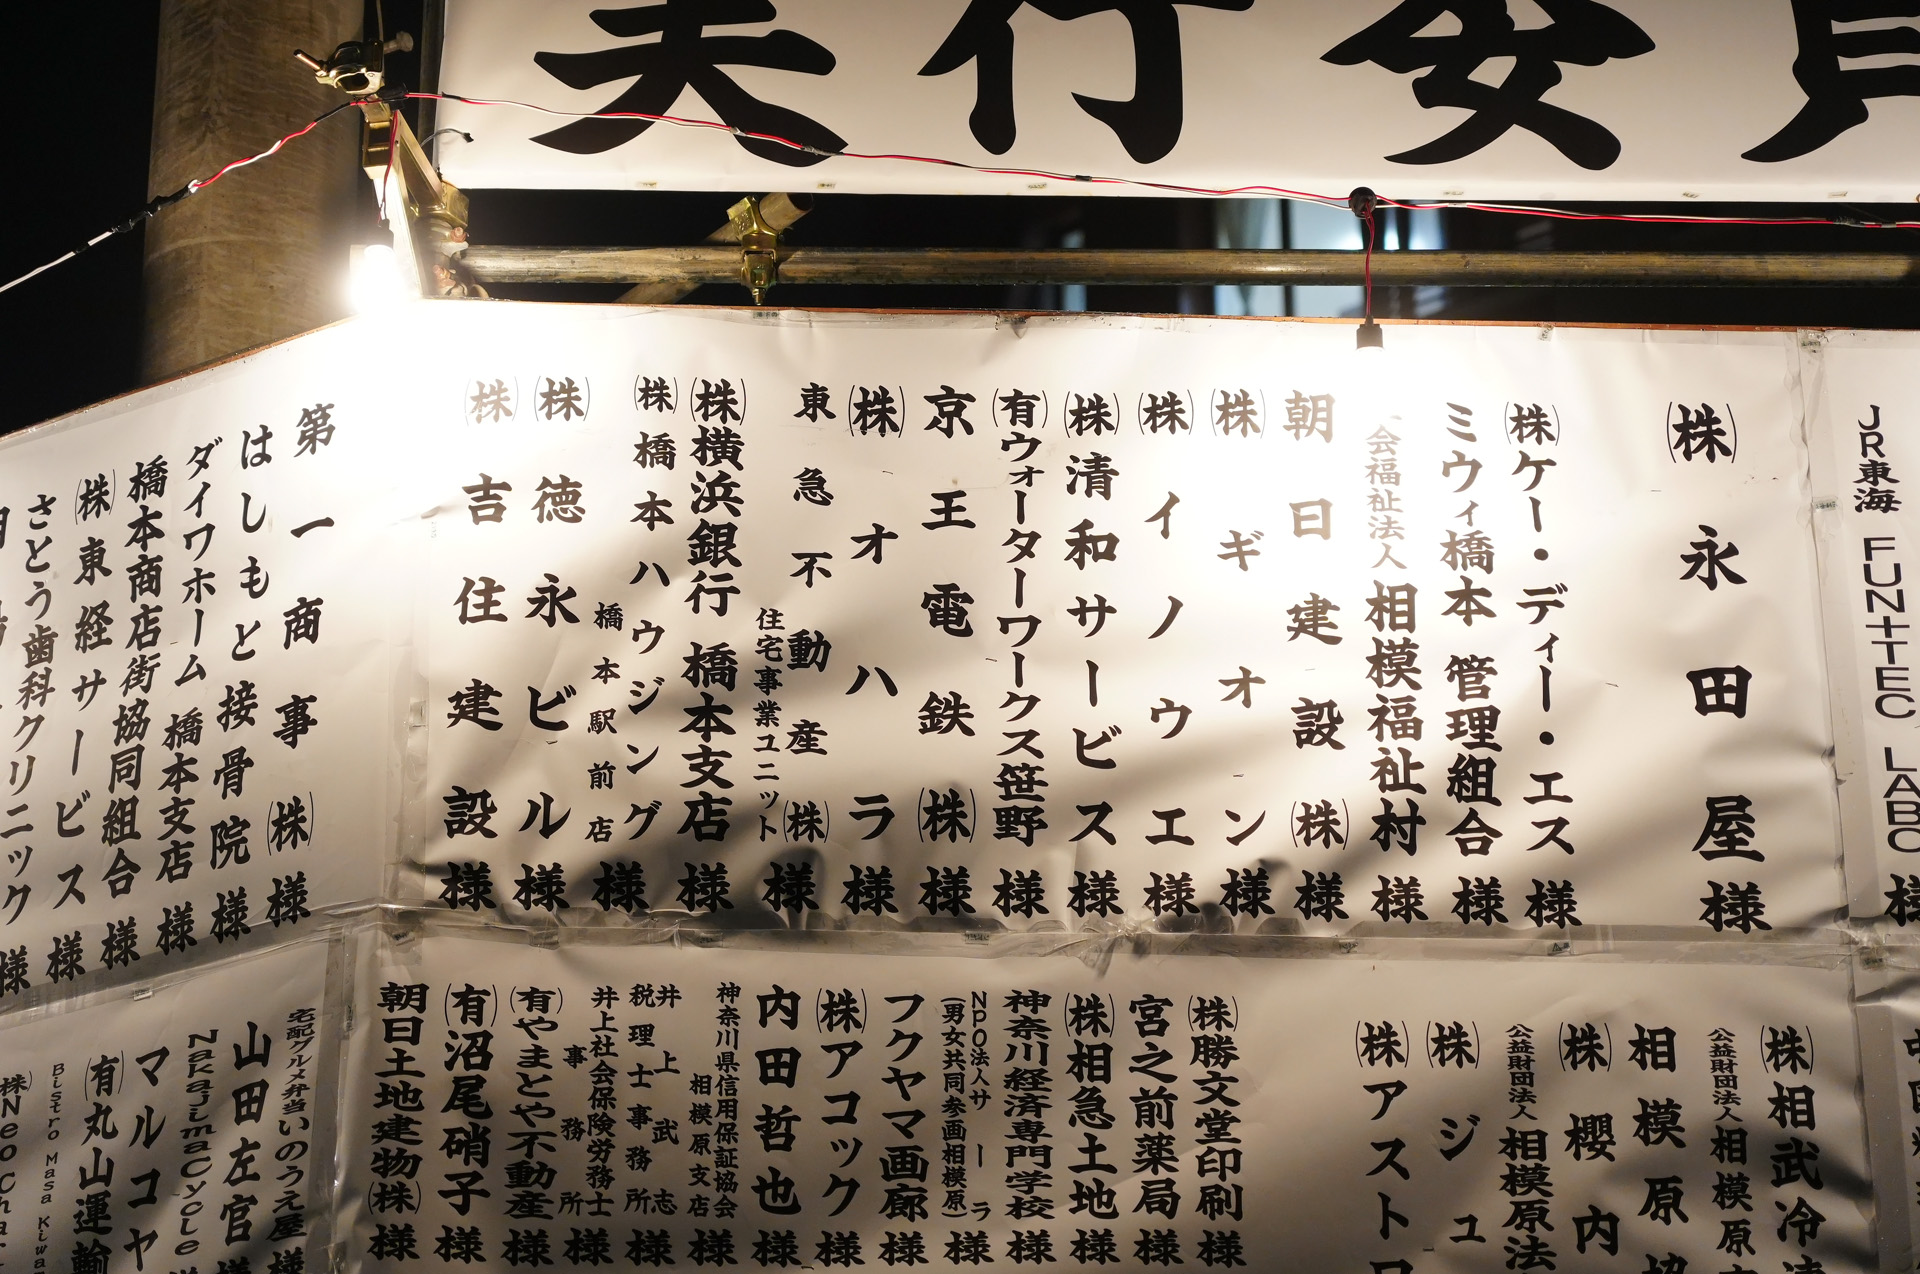 実行委員
JR東海 FUNTEC LABO 様
㈱永田屋様
㈱ケー・ディー・エス様
ミウィ橋本 管理組合様
会福祉法人 相模福祉村様
朝日建設㈱様
㈱ギオン様
㈱イノウエ様
㈱清和サービス様
㈲ウォーターワークス笹野様
京王電鉄㈱様
㈱オハラ様
東急不動産㈱
住宅事業ユニット様
㈱横浜銀行 橋本支店様
㈱橋本ハウジング
橋本駅前店様
㈱徳永ビル様
㈱吉住建設様
第一商事㈱様
はしもと接骨院様
ダイワホーム 橋本支店様
橋本商店街協同組合様
㈱東経サービス様
さとう歯科クリニック様
㈱相武冷
公益財団法人 相模原
相模原
㈱櫻内
公益財団法人 相模原法
㈱ジュ
㈱アスト
㈱勝文堂印刷様
宮之前薬局様
㈱相急土地様
神奈川経済専門学校様
NPO法人サーラ
(男女共同参画相模原)様
フクヤマ画廊様
㈱アコック様
内田哲也様
神奈川県信用保証協会
相模原支店様
井上武志
税理士事務所様
井上社会保険労務士
事務所様
㈲やまとや不動産様
㈲沼尾硝子様
朝日土地建物㈱様
宅配グルメ弁当いのうえ屋様
山田左官様
NakajimaCycle
マルコヤ
㈲丸山運輸
Bistro Masa Kiwa
㈱Neo Cha